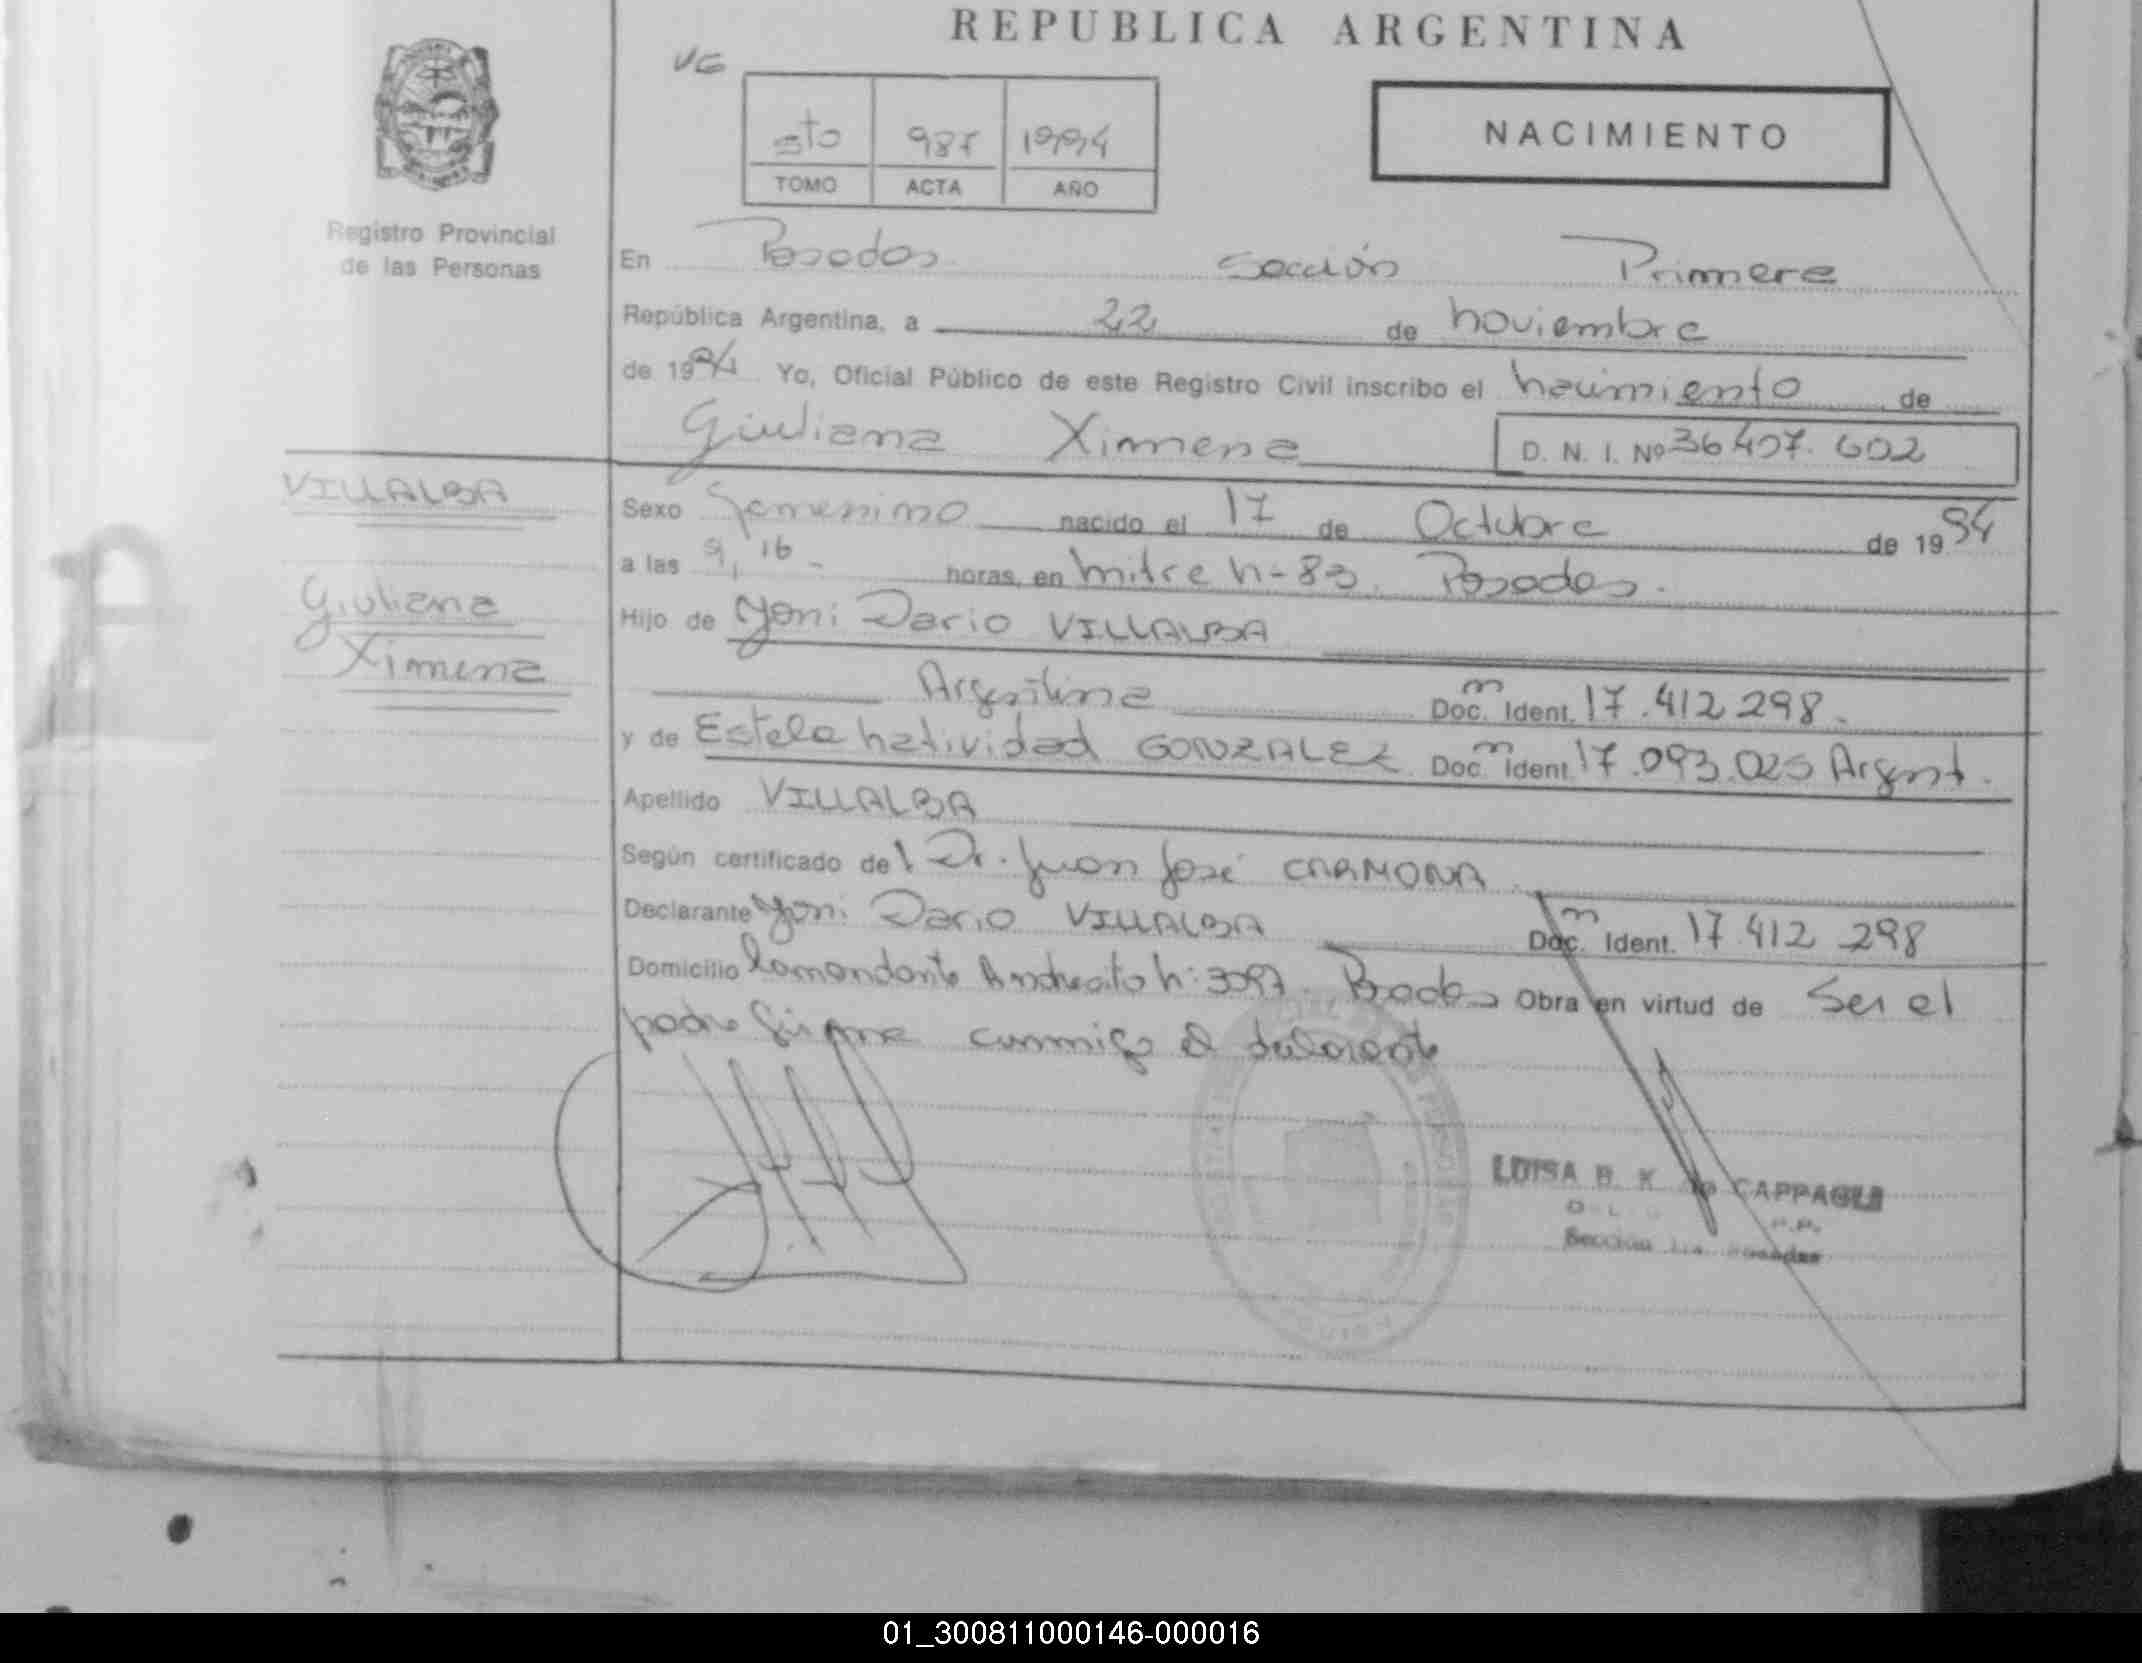 REPUBLICA ARGENTINA
VG
5to 987 1994
TOMO ACTA AÑO
NACIMIENTO
Registro Provincial
de las Personas
En Posadas Sección Primera
República Argentina, a 22 de noviembre
de 1994 Yo, Oficial Público de este Registro Civil inscribo el nacimiento de
Giuliana Ximena D. N. I. Nº 36.407.602
VILLALBA
Giuliana
Ximena
Sexo femenino nacido el 17 de Octubre de 1994
a las 9,16 horas, en mitre n-83. Posadas.
Hijo de Yoni Dario VILLALBA
Argentina Doc. Ident. 17.412 298.
y de Estela natividad GONZALEZ Doc. Ident. 17.093.025 Argent.
Apellido VILLALBA
Según certificado del Dr. Juan José CARMONA
Declarante Yoni Dario VILLALBA Doc. Ident. 17.412 298
Domicilio Comandante Andresito n: 3097. Posadas Obra en virtud de Ser el
padre firma conmigo el declarante
LUISA B. K. de CAPPAGLI
Sección 1ra. Posadas
01_300811000146-000016